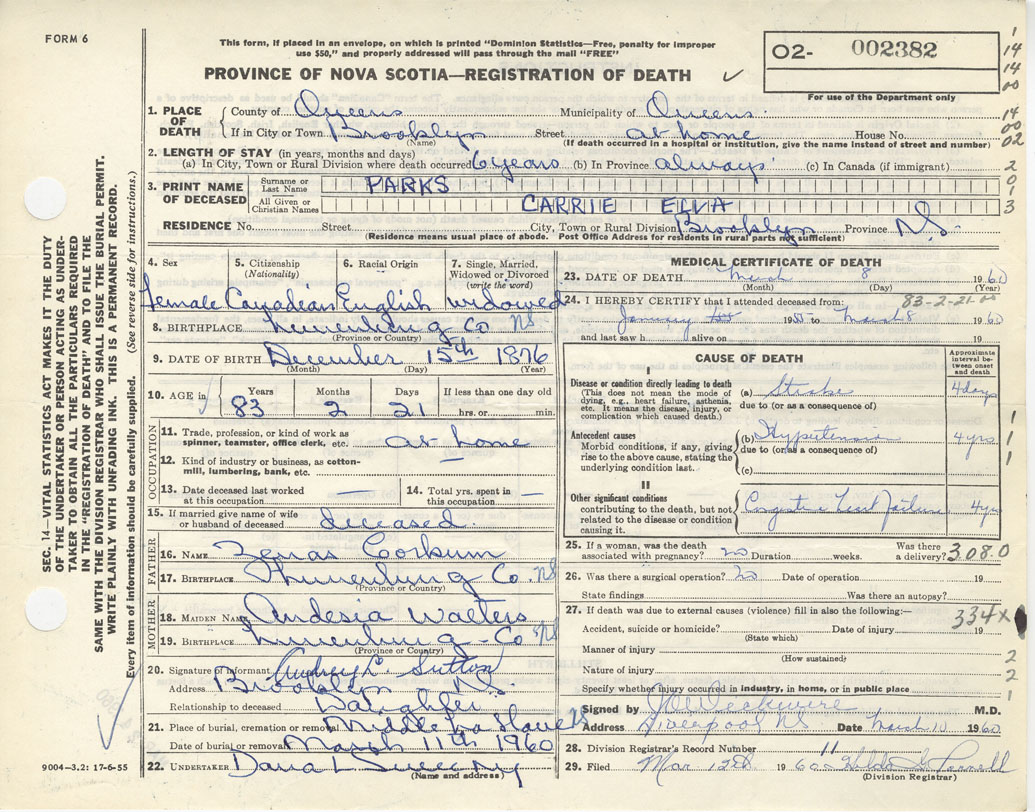 FORM 6
This form, if placed in an envelope, on which is printed "Dominion Statistics—Free, penalty for improper
use $50," and properly addressed will pass through the mail "FREE"
PROVINCE OF NOVA SCOTIA—REGISTRATION OF DEATH ✓
02- 002382
For use of the Department only
1. PLACE OF DEATH County of Queens Municipality of Queens
If in City or Town Brooklyn Street at home House No.
(Name) (If death occurred in a hospital or institution, give the name instead of street and number)
2. LENGTH OF STAY (in years, months and days)
(a) In City, Town or Rural Division where death occurred 6 years (b) In Province always (c) In Canada (if immigrant)
3. PRINT NAME OF DECEASED Surname or Last Name PARKS
All Given or Christian Names CARRIE ELVA
RESIDENCE No. Street City, Town or Rural Division Brooklyn Province N.S.
(Residence means usual place of abode. Post Office Address for residents in rural parts not sufficient)
4. Sex 5. Citizenship (Nationality) 6. Racial Origin 7. Single, Married, Widowed or Divorced (write the word)
female Canadian English widowed
8. BIRTHPLACE Lunenburg Co NS
(Province or Country)
9. DATE OF BIRTH December 15th 1876
(Month) (Day) (Year)
10. AGE in Years Months Days If less than one day old
83 2 21 hrs. or min.
OCCUPATION
11. Trade, profession, or kind of work as spinner, teamster, office clerk, etc. at home
12. Kind of industry or business, as cotton-mill, lumbering, bank, etc. —
13. Date deceased last worked at this occupation — 14. Total yrs. spent in this occupation —
15. If married give name of wife or husband of deceased deceased.
FATHER
16. NAME Zenas Corkum
17. BIRTHPLACE Lunenburg Co. NS
(Province or Country)
MOTHER
18. MAIDEN NAME Andesia Walters
19. BIRTHPLACE Lunenburg Co NS
(Province or Country)
20. Signature of informant Audrey L Sutton
Address Brooklyn N.S.
Relationship to deceased Daughter
21. Place of burial, cremation or removal Middle La Have NS
Date of burial or removal March 11th 1960
22. UNDERTAKER Dana L Sweeny
(Name and address)
9004-3.2: 17-6-55
MEDICAL CERTIFICATE OF DEATH
23. DATE OF DEATH March 8 1960
(Month) (Day) (Year)
24. I HEREBY CERTIFY that I attended deceased from: 83-2-21
January 1955 to March 8 1960
and last saw h alive on 19
CAUSE OF DEATH
Approximate interval between onset and death
I
Disease or condition directly leading to death (a) Stroke 4 days
(This does not mean the mode of dying, e.g., heart failure, asthenia, etc. It means the disease, injury, or complication which caused death.)
due to (or as a consequence of)
Antecedent causes (b) Hypertension 4 yrs
Morbid conditions, if any, giving rise to the above cause, stating the underlying condition last.
due to (or as a consequence of)
(c)
II
Other significant conditions contributing to the death, but not related to the disease or condition causing it.
Congestive heart failure 4 yrs
25. If a woman, was the death associated with pregnancy? no Duration weeks. Was there a delivery? 308.0
26. Was there a surgical operation? no Date of operation 19
State findings Was there an autopsy?
27. If death was due to external causes (violence) fill in also the following:— 334x
Accident, suicide or homicide? Date of injury 19
(State which)
Manner of injury
(How sustained)
Nature of injury
Specify whether injury occurred in industry, in home, or in public place
Signed by M.D.
Address Liverpool NS Date March 10 1960
28. Division Registrar's Record Number 11
29. Filed Mar 12th 1960
(Division Registrar)
SEC. 14—VITAL STATISTICS ACT MAKES IT THE DUTY
OF THE UNDERTAKER OR PERSON ACTING AS UNDER-
TAKER TO OBTAIN ALL THE PARTICULARS REQUIRED
IN THE "REGISTRATION OF DEATH" AND TO FILE THE
SAME WITH THE DIVISION REGISTRAR WHO SHALL ISSUE THE BURIAL PERMIT.
WRITE PLAINLY WITH UNFADING INK. THIS IS A PERMANENT RECORD.
Every item of information should be carefully supplied. (See reverse side for instructions.)
1
14
14
00
14
00
02
2
0
1
3
1
1
1
2
2
1